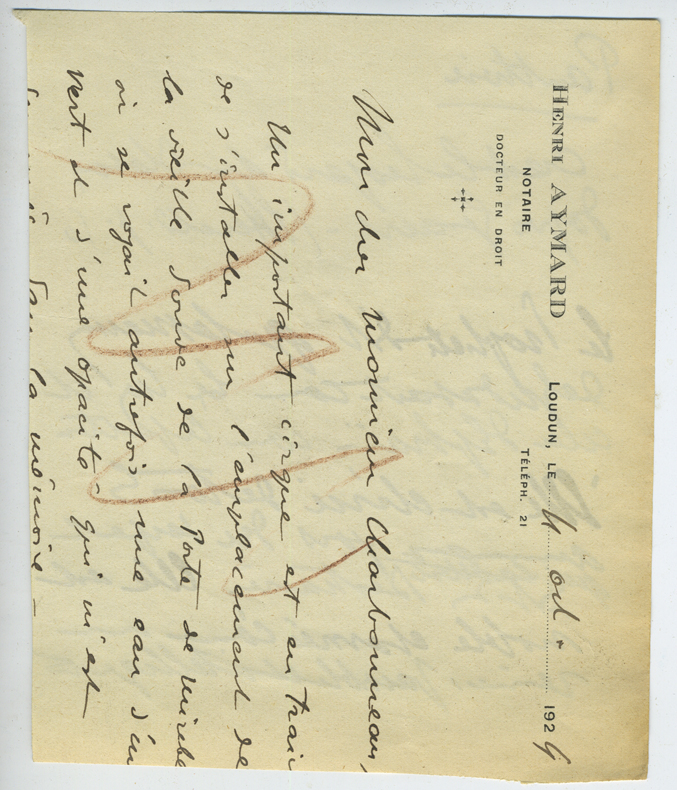 HENRI AYMARD
NOTAIRE
DOCTEUR EN DROIT
LOUDUN, LE 4 oct. 1929
TÉLÉPH. 21
Mon cher Monsieur Charbonneau,
Un important cirque est en train
de s'installer sur l'emplacement de
la vieille Douve de la Porte de Mirebe
où se voyait autrefois une eau d'un
vert et d'une opacité qui m'est
dans la mémoire –